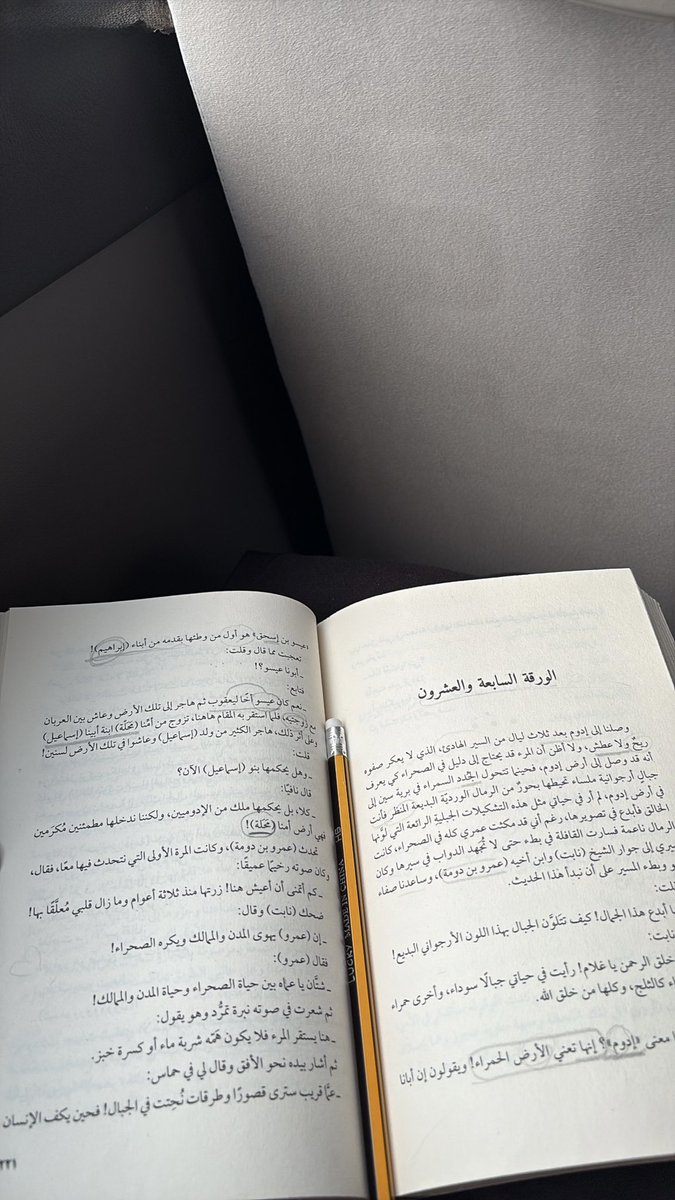 الورقة السابعة والعشرون
وصلنا إلى إدوم بعد ثلاث ليال من السير الهادئ، الذي لا يعكر صفوه
ريحٌ ولا عطش، ولا أظن أن المرء قد يحتاج إلى دليل في الصحراء كي يعرف
أنه قد وصل إلى أرض إدوم، فحينما تتحول الجُدد السمراء في برية سين إلى
جبال أرجوانية ملساء تحيطها بحورٌ من الرمال الورديّة البديعة المنظر فأنت
في أرض إدوم، لم أر في حياتي مثل هذه التشكيلات الجبلية الرائعة التي لوَّنها
الخالق فأبدع في تصويرها، رغم أني قد مكثت عمري كله في الصحراء، كانت
الرمال ناعمة فسارت القافلة في بطء حتى لا تُجهد الدواب في سيرها وكان
سيري إلى جوار الشيخ (نابت) وابن أخيه (عمرو بن دومة)، وساعدنا صفاء
و وبطء المسير على أن نبدأ هذا الحديث.
لت:
ا أبدع هذا الجمال! كيف تتلوَّن الجبال بهذا اللون الأرجواني البديع!
نابت:
خلق الرحمن يا غلام! رأيت في حياتي جبالًا سوداء، وأخرى حمراء
اء كالثلج، وكلها من خلق الله.
ا معنى «إدوم»؟ إنها تعني الأرض الحمراء! ويقولون إن أبانا
(عيسو بن إسحق) هو أول من وطئها بقدمه من أبناء (إبراهيم)!
تعجبت مما قال وقلت:
ـ أبونا عيسو؟!
فتابع:
ـ نعم كان عيسو أخًا ليعقوب ثم هاجر إلى تلك الأرض وعاش بين العربان
مع زوجتيه، فلما استقر به المقام هاهنا، تزوج من أمِّنا (مَحَلَة) ابنة أبينا (إسماعيل)
وعلى أثر ذلك، هاجر الكثير من ولد (إسماعيل) وعاشوا في تلك الأرض لسنين!
قلت:
ـ وهل يحكمها بنو (إسماعيل) الآن؟
قال نافيًا:
ـ كلا، بل يحكمها ملك من الإدوميين، ولكننا ندخلها مطمئنين مُكرمين
فهي أرض أمنا (مَحَلة)!
تحدث (عمرو بن دومة)، وكانت المرة الأولى التي نتحدث فيها معًا، فقال،
وكان صوته رخيمًا عميقًا:
ـ كم أتمنى أن أعيش هنا! زرتها منذ ثلاثة أعوام وما زال قلبي مُعلَّقًا بها!
ضحك (نابت) وقال:
ـ إن (عمرو) يهوى المدن والممالك ويكره الصحراء!
فقال (عمرو):
ـ شتَّان يا عماه بين حياة الصحراء وحياة المدن والممالك!
ثم شعرت في صوته نبرة تمرُّد وهو يقول:
ـ هنا يستقر المرء فلا يكون همّه شربة ماء أو كسرة خبز.
ثم أشار بيده نحو الأفق وقال لي في حماس:
ـ عمَّا قريب سترى قصورًا وطرقات نُحِتت في الجبال! فحين يكف الإنسان
٢٢١
LUCKY MADE IN CHINA HB